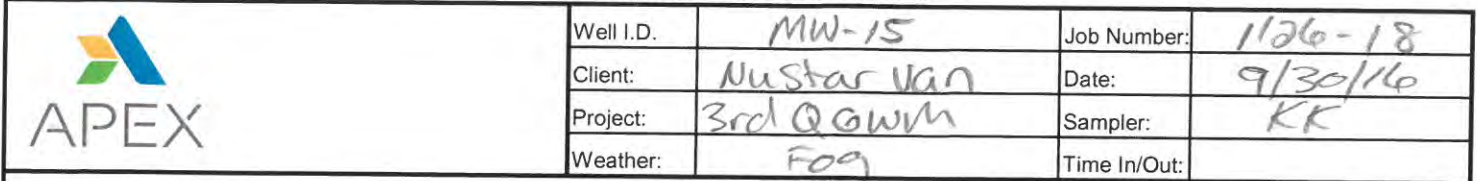 Well I.D. MW-15 Job Number: 1126-18
Client: NuStar Van Date: 9/30/16
Project: 3rd Q GWM Sampler: KK
Weather: Fog Time In/Out:
APEX